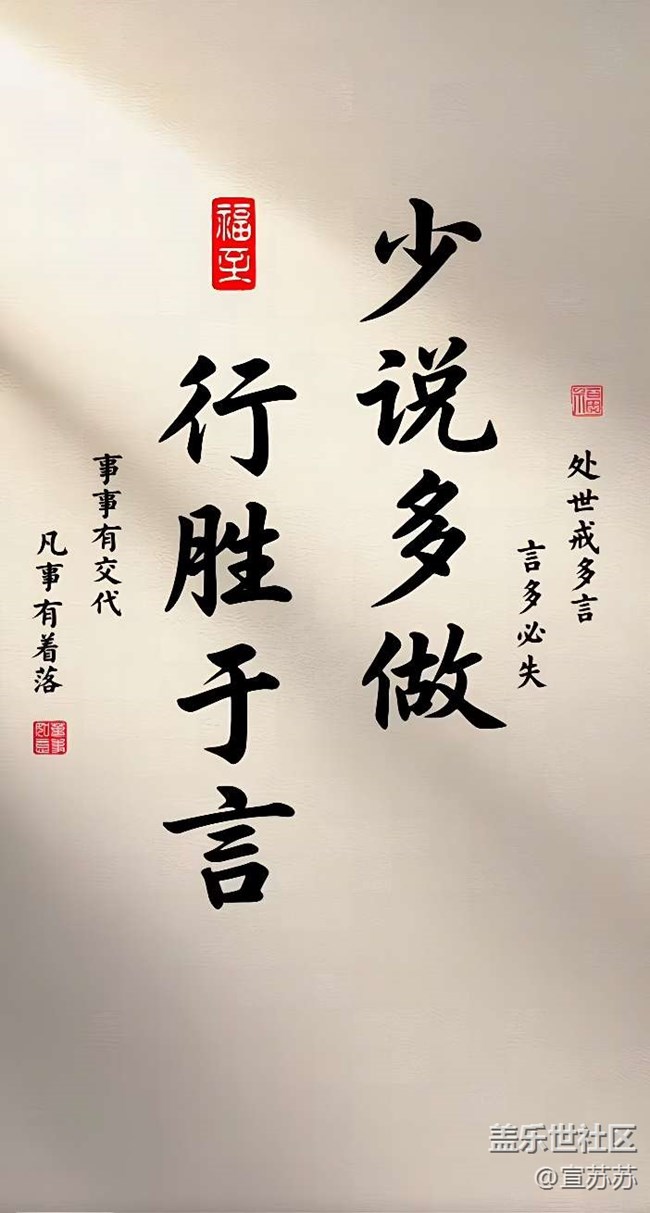 处世戒多言
言多必失
少说多做
福至
行胜于言
事事有交代
凡事有着落
盖乐世社区
@宣苏苏